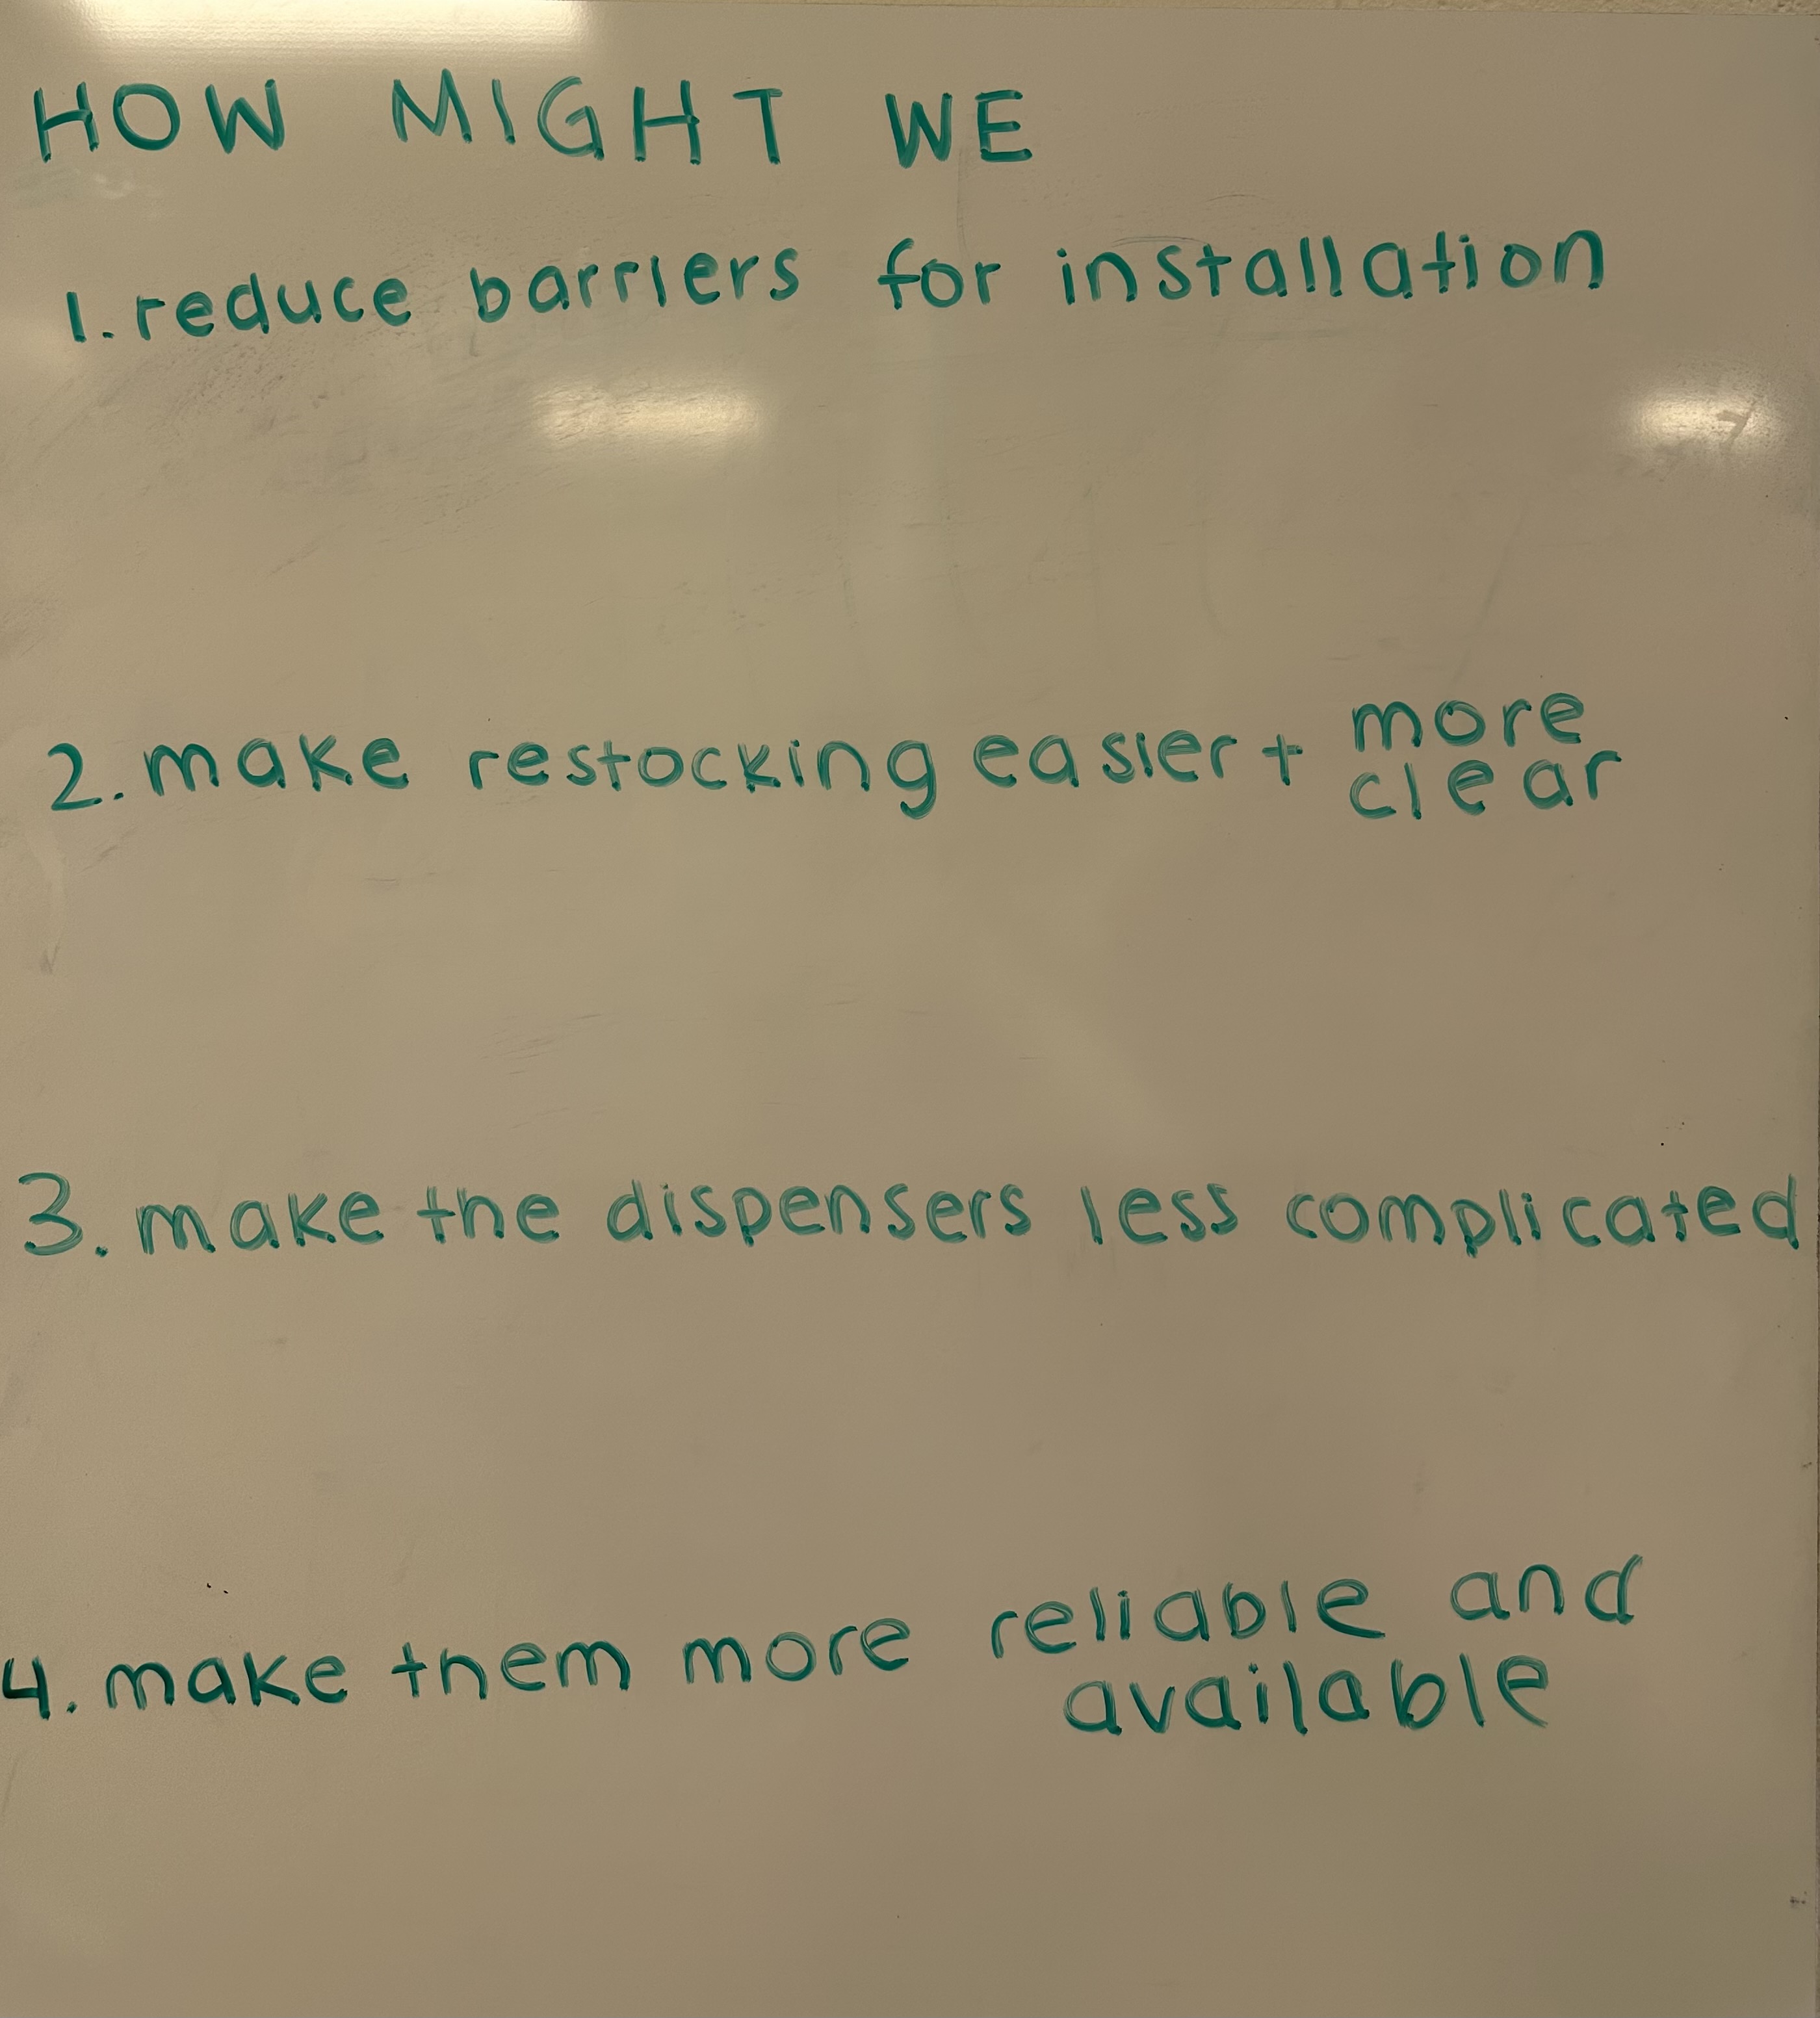 HOW MIGHT WE
1. reduce barriers for installation
2. make restocking easier + more
clear
3. make the dispensers less complicated
4. make them more reliable and
available